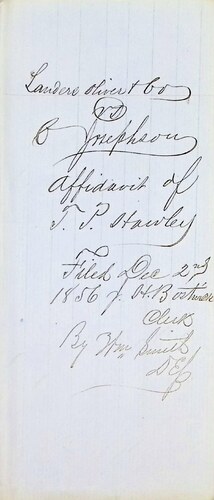 Landers Oliver & Co
vs
B Josephson
Affidavit of
T. P. Hawley
Filed Dec 2nd
1856 J. H. Bostwick
Clerk
By Wm Smith
D C